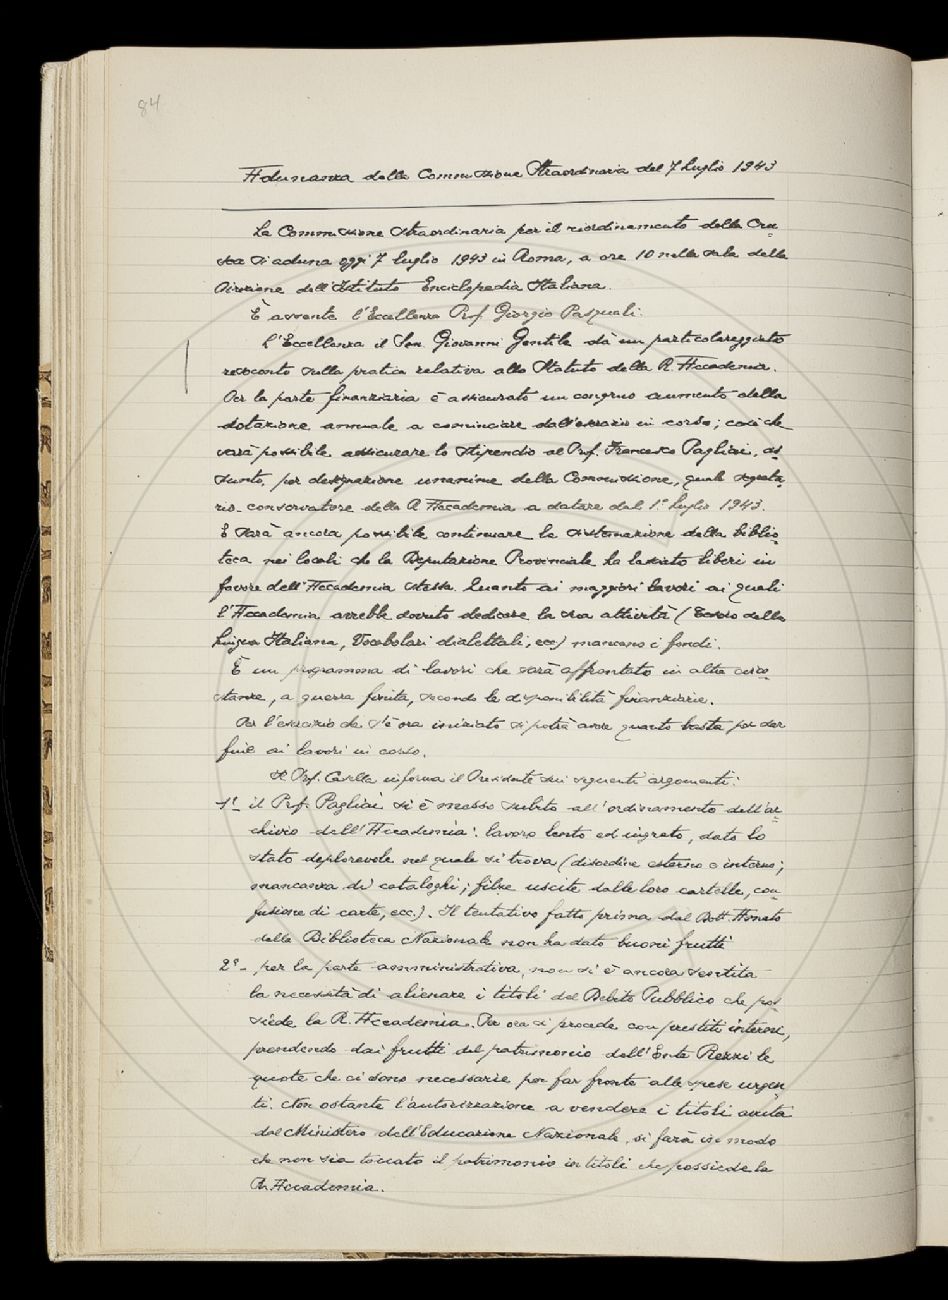 84
Adunanza della Commissione Straordinaria del 7 Luglio 1943
La Commissione straordinaria per il riordinamento della Cru=
sca si aduna oggi 7 luglio 1943 in Roma, a ore 10 nella sala della
Direzione dell'Istituto Enciclopedia Italiana.
È assente l'Eccellenza Prof. Giorgio Pasquali.
L'Eccellenza il Sen. Giovanni Gentile dà un particolareggiato
resoconto sulla pratica relativa allo Statuto della R. Accademia.
Per la parte finanziaria è assicurato un congruo aumento della
dotazione annuale a cominciare dall'esercizio in corso; così che
sarà possibile assicurare lo stipendio al Prof. Francesco Pagliai, as=
sunto, per designazione unanime della Commissione, quale segreta=
rio-conservatore della R. Accademia a datare dal 1° luglio 1943.
E sarà ancora possibile continuare la sistemazione della biblio=
teca nei locali che la Deputazione Provinciale ha lasciato liberi in
favore dell'Accademia stessa. Quanto ai maggiori lavori ai quali
l'Accademia avrebbe dovuto dedicare la sua attività (Tesoro della
Lingua Italiana, Vocabolari dialettali, ecc) mancano i fondi.
È un programma di lavori che sarà affrontato in altre circo=
stanze, a guerra finita, secondo le disponibilità finanziarie.
Per l'esercizio che s'è ora iniziato si potrà avere quanto basta per dar
fine ai lavori in corso.
Il Prof. Casella informa il Presidente sui seguenti argomenti:
1°- il Prof. Pagliai si è messo subito all'ordinamento dell'ar=
chivio dell'Accademia: lavoro lento ed ingrato, dato lo
stato deplorevole nel quale si trova (disordine esterno e interno;
mancanza di cataloghi; filze uscite dalle loro cartelle, con=
fusione di carte, ecc.). Il tentativo fatto prima dal Dott.
della Biblioteca Nazionale non ha dato buoni frutti
2°- per la parte amministrativa, non si è ancora sentita
la necessità di alienare i titoli del Debito Pubblico che pos=
siede la R. Accademia. Per ora si procede con prestiti interni,
prendendo dai frutti del patrimonio dell'Ente Rezzi le
quote che ci sono necessarie per far fronte alle spese urgen=
ti. Non ostante l'autorizzazione a vendere i titoli avuta
dal Ministero dell'Educazione Nazionale, si farà in modo
che non sia toccato il patrimonio in titoli che possiede la
R. Accademia.